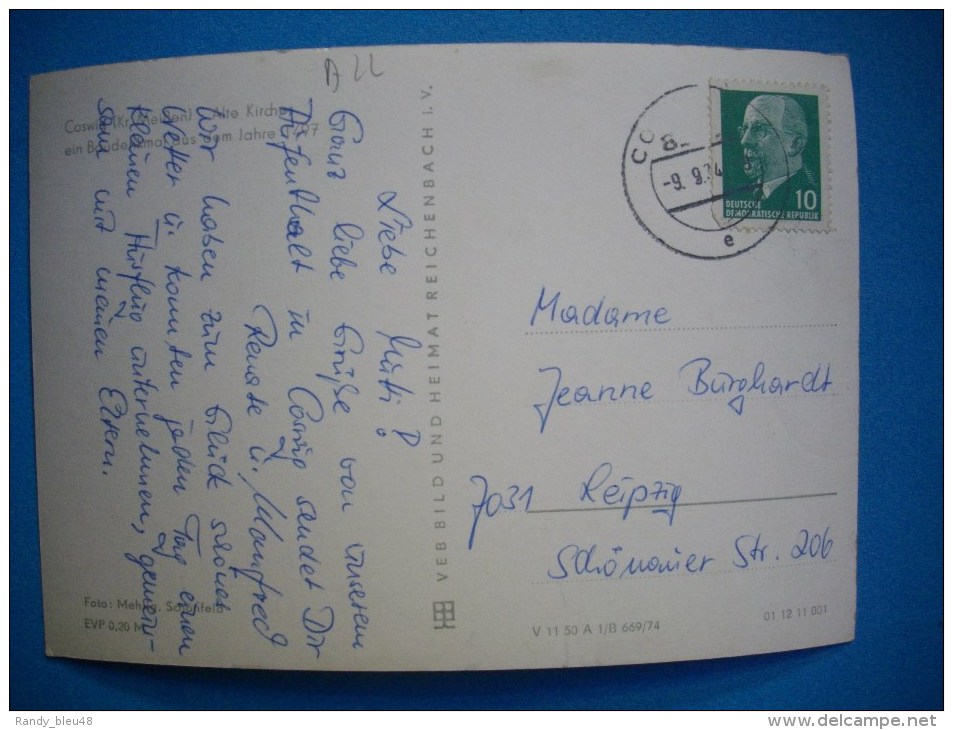 A 22
Coswig (Kr. Meißen) Alte Kirche
ein Baudenkmal aus dem Jahre 1497
Liebe
Ganz liebe Grüße von unserem
Aufenthalt in Coswig sendet Dir
Renate u. Manfred
Wir haben zum Glück schönes
Wetter u. konnten jeden Tag einen
kleinen Ausflug unternehmen, gemein-
sam mit meinen Eltern.
Foto: Mehlig,
EVP 0,20 M
VEB BILD UND HEIMAT REICHENBACH I. V.
CO
8.
-9. 9.74
e
10
DEUTSCHE
DEMOKRATISCHE REPUBLIK
Madame
Jeanne Burghardt
7031 Leipzig
Schönauer Str. 206
V 11 50 A 1/B 669/74
01 12 11 001
Randy_bleu48
http://www.delcampe.net